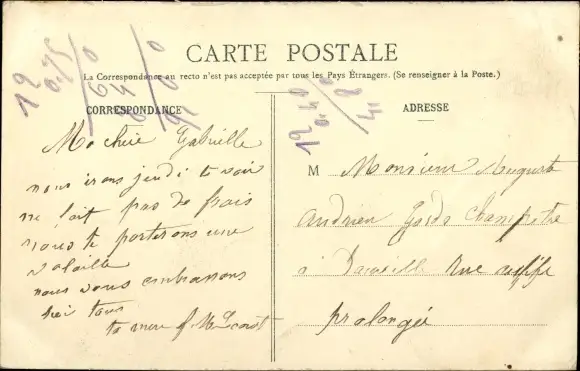 CARTE POSTALE
La Correspondance au recto n'est pas acceptée par tous les Pays Étrangers. (Se renseigner à la Poste.)
CORRESPONDANCE
Ma chère Gabrielle
nous irons jeudi te voir
ne fait pas de frais
nous te porterons une
volaille
nous vous embrassons
bien tous
ta mère
ADRESSE
M Monsieur Auguste
Andrieu Garde Champêtre
à Rue
prolongée
12
0,75